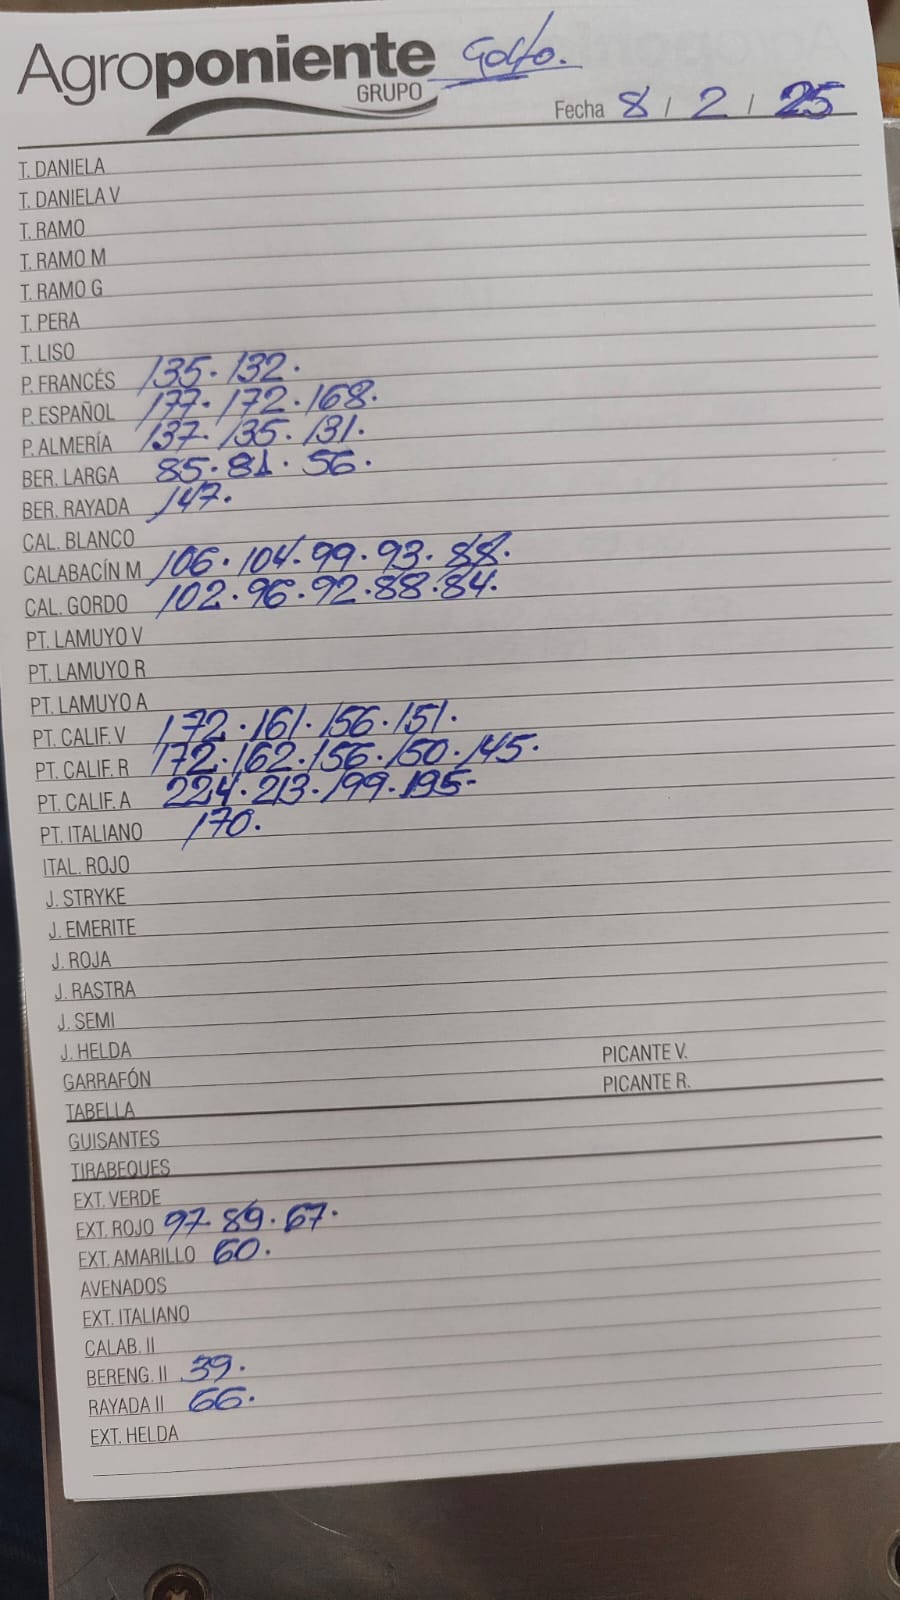 Agroponiente Golfo.
GRUPO
Fecha 8 / 2 / 25
T. DANIELA
T. DANIELA V
T. RAMO
T. RAMO M
T. RAMO G
T. PERA
T. LISO
P. FRANCÉS 135. 132.
P. ESPAÑOL 177. 172. 168.
P. ALMERÍA 137. 135. 131.
BER. LARGA 85. 81. 56.
BER. RAYADA 147.
CAL. BLANCO
CALABACÍN M 106. 104. 99. 93. 88.
CAL. GORDO 102. 96. 92. 88. 84.
PT. LAMUYO V
PT. LAMUYO R
PT. LAMUYO A
PT. CALIF. V 172. 161. 156. 151.
PT. CALIF. R 172. 162. 156. 150. 145.
PT. CALIF. A 224. 213. 199. 195.
PT. ITALIANO 170.
ITAL. ROJO
J. STRYKE
J. EMERITE
J. ROJA
J. RASTRA
J. SEMI
J. HELDA PICANTE V.
GARRAFÓN PICANTE R.
TABELLA
GUISANTES
TIRABEQUES
EXT. VERDE
EXT. ROJO 97. 89. 67.
EXT. AMARILLO 60.
AVENADOS
EXT. ITALIANO
CALAB. II
BERENG. II 39.
RAYADA II 66.
EXT. HELDA